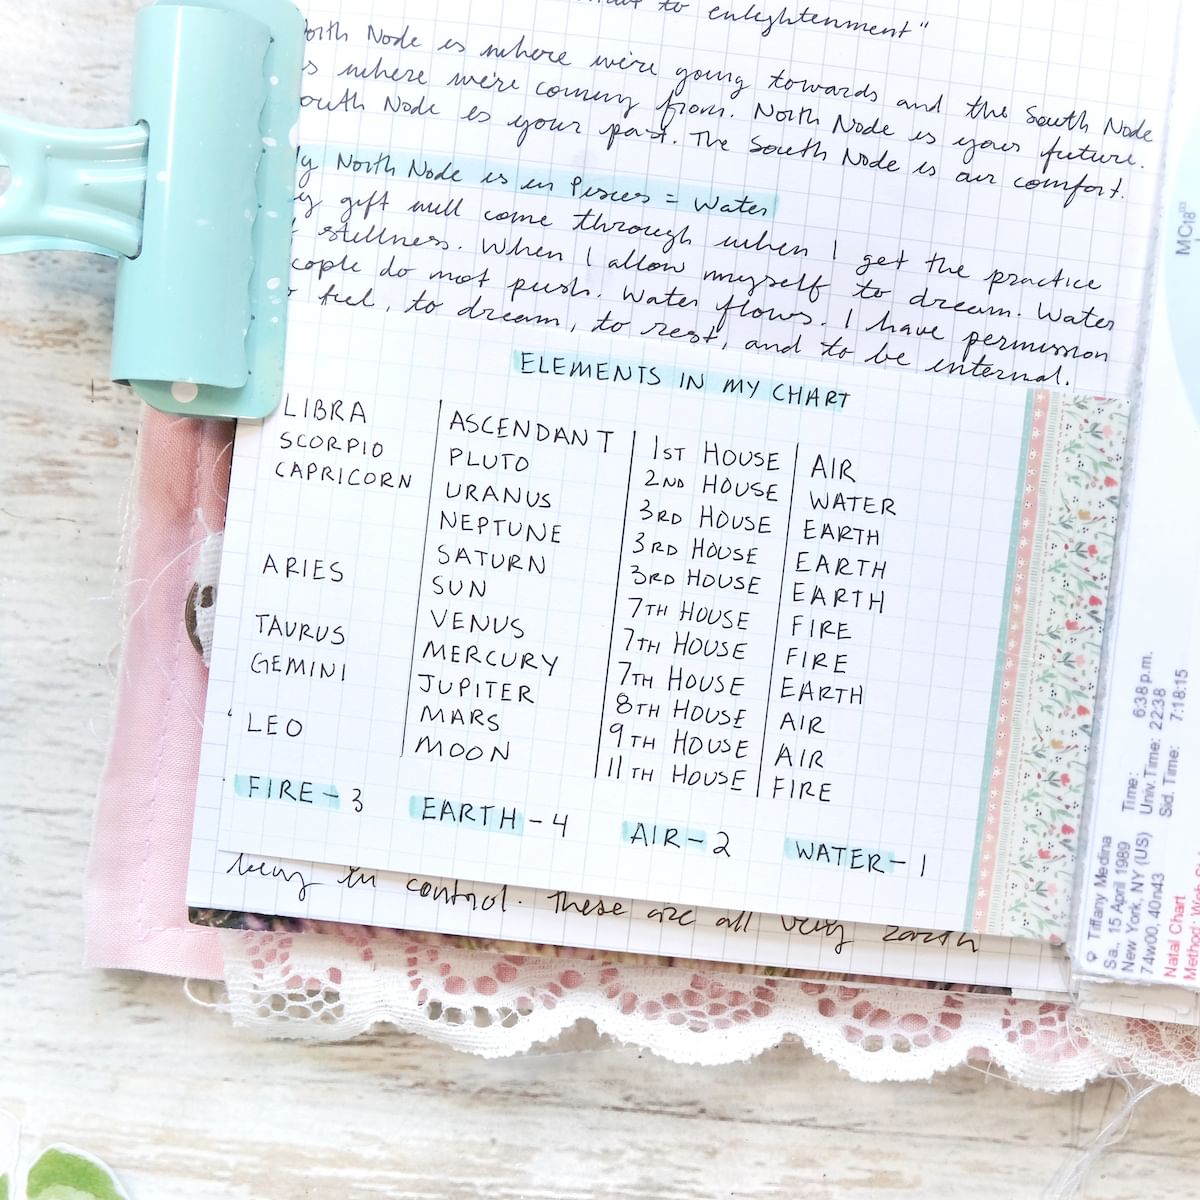 to enlightenment"
North Node is where we're going towards and the South Node
is where we're coming from. North Node is your future.
South Node is your past. The South Node is our comfort.
My North Node is in Pisces = Water
My gift will come through when I get the practice
of stillness. When I allow myself to dream. Water
people do not push. Water flows. I have permission
to feel, to dream, to rest, and to be internal.
ELEMENTS IN MY CHART
LIBRA ASCENDANT 1ST HOUSE AIR
SCORPIO PLUTO 2ND HOUSE WATER
CAPRICORN URANUS 3RD HOUSE EARTH
NEPTUNE 3RD HOUSE EARTH
SATURN 3RD HOUSE EARTH
ARIES SUN 7TH HOUSE FIRE
VENUS 7TH HOUSE FIRE
TAURUS MERCURY 7TH HOUSE EARTH
GEMINI JUPITER 8TH HOUSE AIR
MARS 9TH HOUSE AIR
LEO MOON 11TH HOUSE FIRE
FIRE - 3 EARTH - 4 AIR - 2 WATER - 1
being in control. These are all very earth
MC 18
♀ Tiffany Medina
Sa., 15 April 1989 Time: 6:38 p.m.
New York, NY (US) Univ.Time: 22:38
74w00, 40n43 Sid. Time: 7:18:15
Natal Chart
Method: